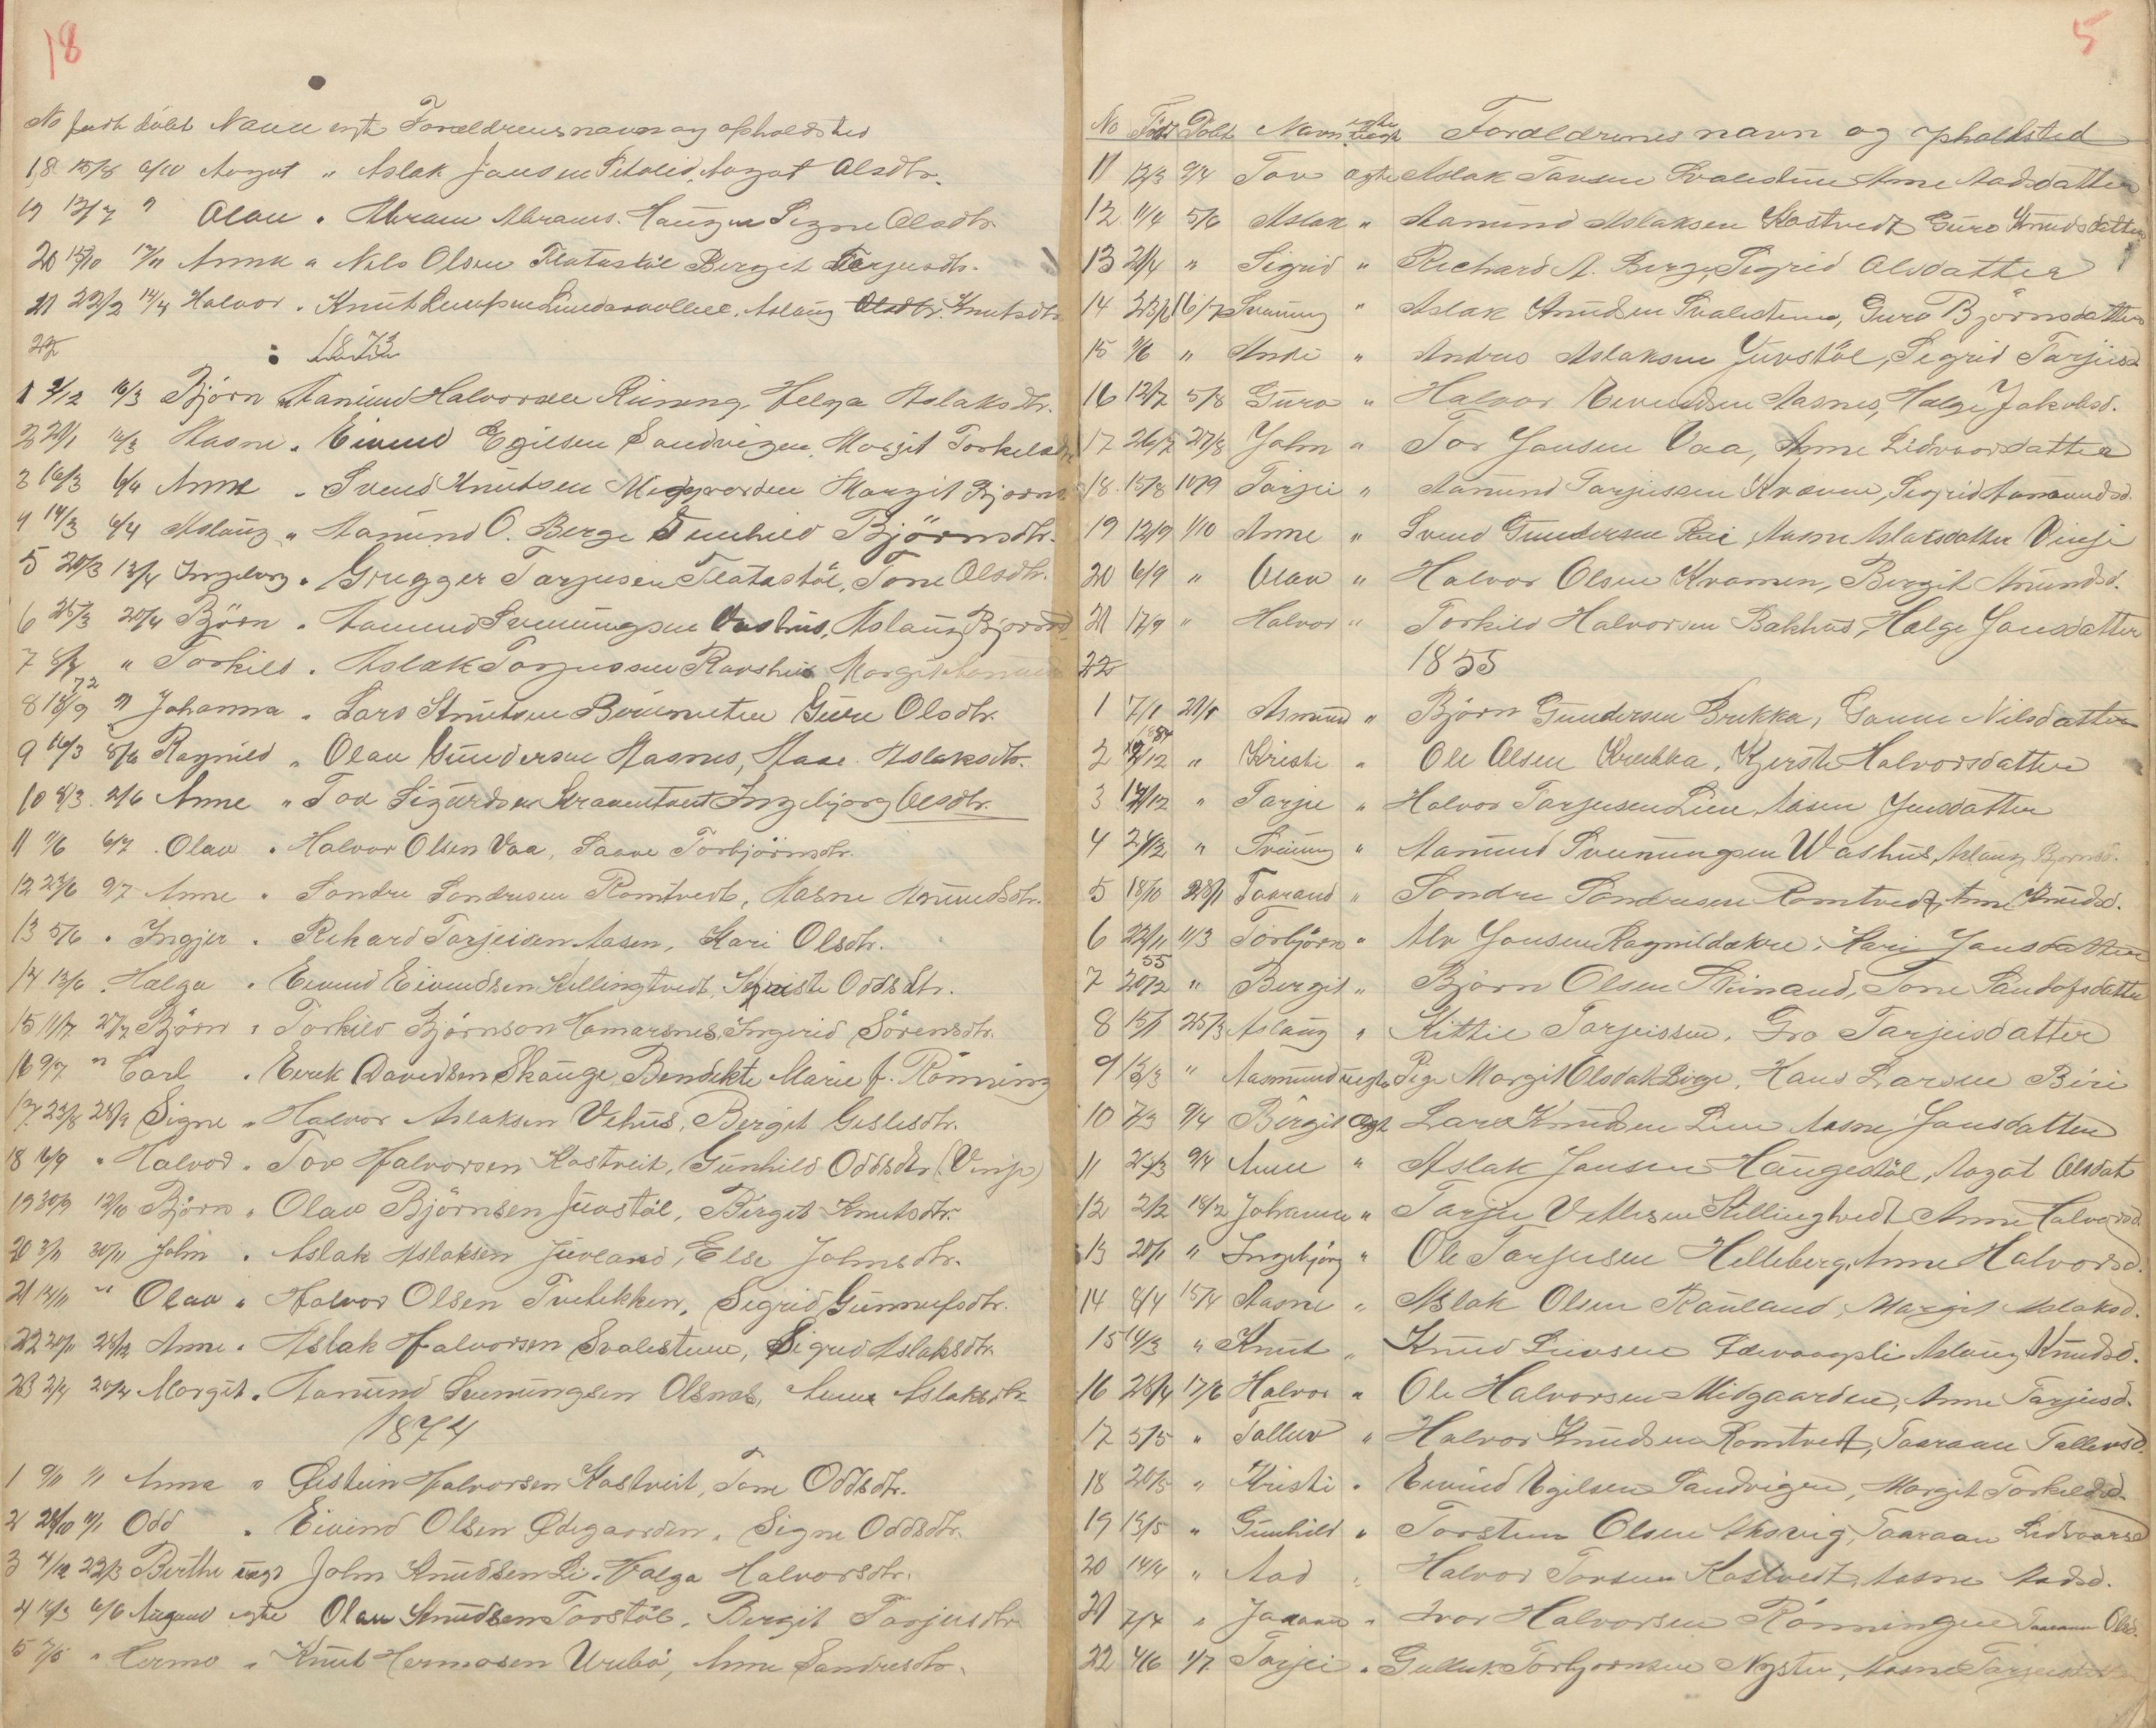 18
No født døbt Navn egte Forældrenes navn og opholdsted
18 15/8 6/10 Aagot " Aslak Jansen Aagot Olsdtr.
19 12/7 " Olau " Abram Abrams. Haugen Signe Olsdtr.
20 15/10 17/11 Anne " Nils Olsen Flatastöl Berget Tarjusdtr.
21 22/2 14/4 Halvor " Knut Aslaug Olsdtr. Knutsdtr
22 1873
1 2/12 16/3 Björn " Aanund Halvorsen Helga Aslaksdtr.
2 20/1 16/3 Aasne " Eivind Egilsen Sandvigen, Margit Torkelsdtr
3 16/3 6/4 Anne " Svend Knutsen Midgaarden Margit Bjorns
4 14/3 6/4 Aslaug " Aanund O. Berge Gunhild Björnsdtr.
5 20/3 13/4 Ingeborg " Grugger Tarjusen Flatastöl, Tone Olsdtr.
6 25/3 20/4 Björn " Aanund Svenungsen Vashus, Aslaug Bjornsd
7 8/4 " Torkild " Aslak Tarjussen Raushus Margit
8 18/9 72 " Johanna " Lars Knutsen Guru Olsdtr.
9 16/3 8/6 Ragnild " Olau Gundersen Aasnes, Aase Aslaksdtr.
10 8/3 2/6 Anne " Tov Sigurdsen Ingebjorg Olsdtr.
11 1/6 6/7 Olau " Halvor Olsen Vaa, Saave Torbjörnsdtr.
12 23/6 9/7 Anne " Sondre Sondresen Romtvedt, Aasne Anundsdtr.
13 5/6 " Ingjer " Rikard Tarjeisen Aasen, Kari Olsdtr.
14 13/6 " Halga " Eivind Eivindsen Kellingtvedt, Oddsdtr.
15 11/7 27/7 Björn " Torkild Björnson Hamarsnes, Ingerid Sörensdtr.
16 9/7 " Carl " Eerek Davidsen Skauge, Bendikte Marie f. Rönning
17 23/8 28/9 Signe " Halvor Aslaksen Vehus, Bergit Geslesdtr.
18 6/9 " Halvor " Tov Halvorsen Kostveit, Gunhild Oddsdtr (Vinje)
19 30/9 12/10 Björn " Olav Björnsen Juvstöl, Birgit Knutsdtr.
20 3/11 30/11 John " Aslak Aslaksen Juvland, Else Johnsdtr.
21 14/11 " Olau " Halvor Olsen Tvetekken, Sigrid Gunnufsdtr.
22 20/11 28/12 Anne " Aslak Halvorsen Svalestuen, Sigrid Aslaksdtr.
23 2/4 20/4 Margit " Aanund Svenungsen Olsnes, Anne Aslaksdtr
1874
1 9/11 1/1 Anna " Østein Halvorsen Kostveit, Tone Oddsdtr.
2 28/10 11/1 Odd " Eivind Olsen Ødegaarden, Signe Oddsdtr.
3 4/12 22/3 Birthe uegt John Knudsen Li, Halga Halvorsdtr.
4 16/3 6/6 Aagund egte Olau Knudsen Torstöl, Bergit Tarjusdtr
5 7/5 " Hermo " Knut Hermosen Urebö, Anne Sandresdtr.
5
No Født Døbt Navn egte uegte Forældrenes navn og opholdsted
11 12/3 9/4 Tov egte Aslak Tovsen Svalestuen Anne Aadsdatter
12 11/4 5/6 Aslak " Aamund Aslaksen Kostvedt Guro Knudsdatter
13 21/4 " Sigrid " Richard A. Berge, Sigrid Olsdatter
14 23/6 16/7 Svenung " Aslak Knudsen Svalestuen, Guro Björnsdatter
15 9/6 " Andres Aslaksen Juvstöl, Sigrid Tarjeisd
16 12/7 5/8 Guro " Halvor Eivendsen Aasnes, Halge Jakobsd.
17 26/7 27/8 John " Tor Jansen Vaa, Anne Lidvorsdatter
18 15/8 10/9 Tarjei " Aanund Tarjeissen Kraven, Sigrid Aamundsd.
19 12/9 1/10 Anne " Svend Gundersen Rui, Aasne Aslaksdatter Vinje
20 6/9 " Olav " Halvor Olsen Kramen, Bergit Anundsd.
21 17/9 " Halvor " Torkild Halvorsen Bakhus, Halge Jansdatter
22 1855
1 7/1 21/1 Asmund " Björn Gundersen Brekka, Gunne Nilsdatter
2 12 1854 " Kristi " Ole Olsen Krekka, Kjersti Halvorsdatter
3 14/12 " Tarjei " Halvor Tarjeisen Lien, Aasne Jonsdatter
4 27/12 " Svenung " Aanund Svenungsen Washus, Aslaug Bjornsd.
5 18/10 28/1 Taarand " Sondre Sondresen Romtvedt, Anne Knudsd.
6 22/11 11/3 Torbjörn " Alv Jansen Ragnildskre, Kari Jansdatter
7 20/2 55 " Bergit " Björn Olsen Skinand, Tone Sandofsdatter
8 15/1 25/3 Aslaug " Kittil Tarjeissen, Gro Tarjeisdatter
9 13/3 " Aasmund uegte Pige Margit Olsdat Berge, Hans Larsen Biri
10 7/3 9/4 Birgit egt Lars Knudsen Lien Aasne Jansdatter
11 25/3 9/4 Anne " Aslak Jansen Haugestöl, Aagot Olsdat
12 2/2 18/2 Johanne " Tarjei Vetlesen Kellingtvedt Anne Halvorsd.
13 20/1 " Ingebjörg " Ole Tarjusen Helleberg, Anne Halvorsd.
14 8/4 15/4 Aasne " Aslak Olsen Rauland, Margit Aslaksd.
15 14/3 " Knut " Knud Livsen Aslaug Knudsd.
16 28/4 17/6 Halvor " Ole Halvorsen Midgaarden, Anne Tarjeisd.
17 5/5 " Tallev " Halvor Knudsen Romtvedt, Taaraan Tallevsd.
18 20/5 " Kristi " Eivind Egilsen Sandvigen, Margit Torkildsd.
19 19/5 " Gunhild " Torsten Olsen Aksvig, Taaraan Lidvaarsd
20 14/4 " Aad " Halvor Torsen Kostvedt, Aasne Aadsd.
21 7/4 " " Ivar Halvorsen Rönningen Taaraan Olsd.
22 4/6 1/7 Tarjei " Gulleik Torbjornsen Nystu, Aasne